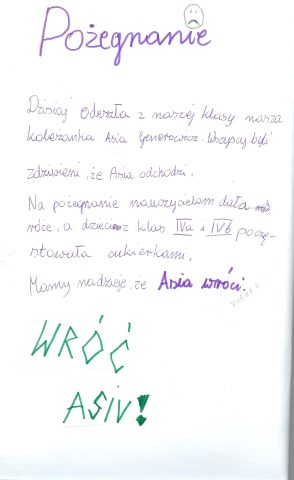 Pożegnanie
Dzisiaj odeszła z naszej klasy nasza
koleżanka Asia Generowicz. Wszyscy byli
zdziwieni, że Asia odchodzi.
Na pożegnanie nauczycielom dała
róże, a dzieciom z klas IVa i IVb poczę-
stowała cukierkami.
Mamy nadzieję, że Asia wróci.
WRÓĆ
ASIU!